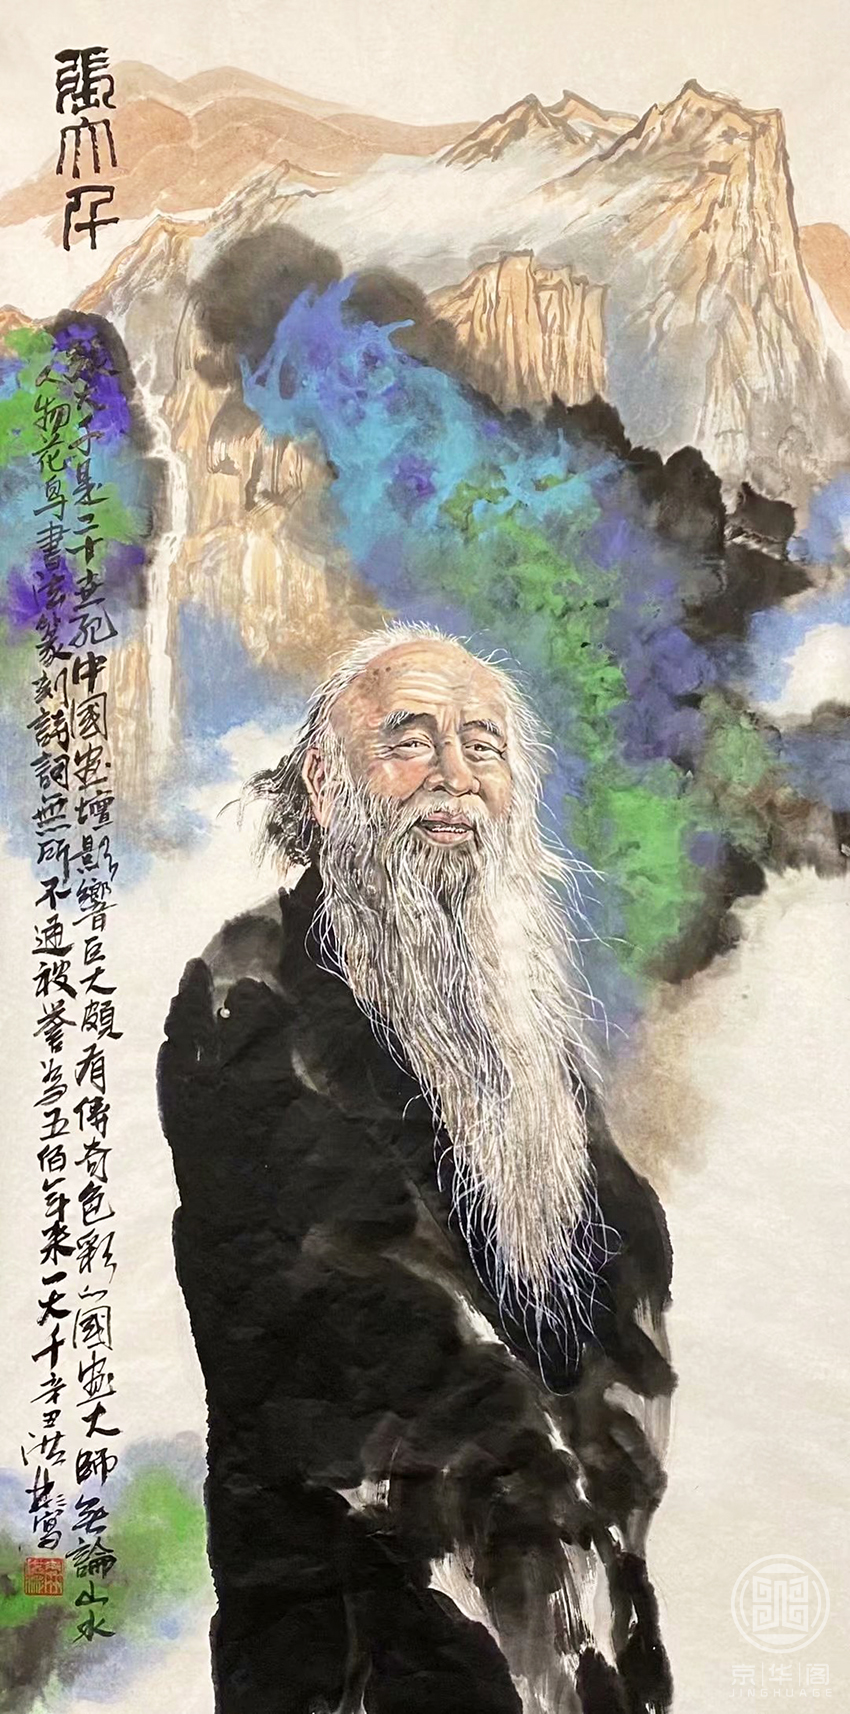 張大千
張大千是二十世紀中國画壇影響巨大頗有傳奇色彩的國画大師無論山水
人物花鳥書法篆刻詩詞無所不通被誉為五佰年來一大千辛丑洪彬寫
京华阁
JINGHUAGE